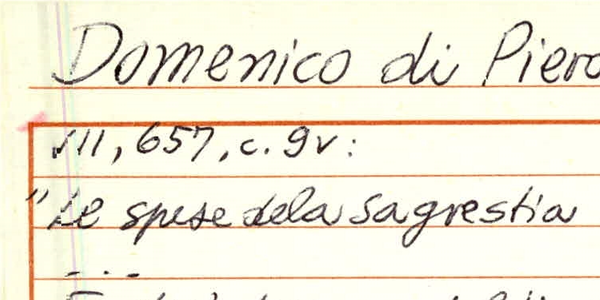 Domenico di Piero
VII, 657, c. 9v:
"Le spese dela sagrestia
...